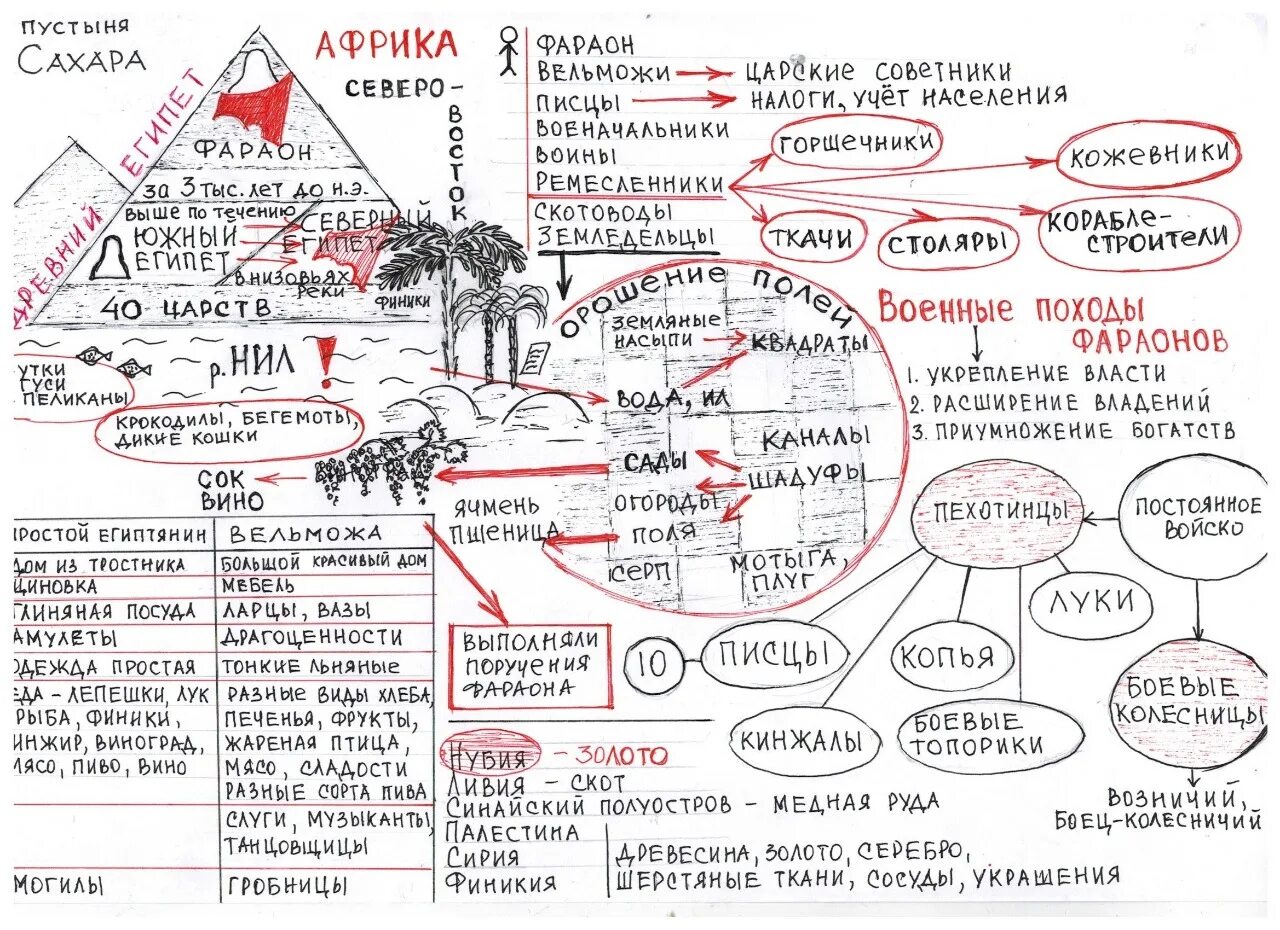 ПУСТЫНЯ
САХАРА
ДРЕВНИЙ ЕГИПЕТ
АФРИКА
СЕВЕРО-
ВОСТОК
ФАРАОН
ЗА 3 ТЫС. ЛЕТ ДО Н.Э.
ВЫШЕ ПО ТЕЧЕНИЮ
ЮЖНЫЙ
ЕГИПЕТ
СЕВЕРНЫЙ
ЕГИПЕТ
В НИЗОВЬЯХ
РЕКИ
40 ЦАРСТВ
ФИНИКИ
УТКИ
ГУСИ
ПЕЛИКАНЫ
р. НИЛ !
КРОКОДИЛЫ, БЕГЕМОТЫ,
ДИКИЕ КОШКИ
СОК
ВИНО
ФАРАОН
ВЕЛЬМОЖИ
ЦАРСКИЕ СОВЕТНИКИ
ПИСЦЫ
НАЛОГИ, УЧЁТ НАСЕЛЕНИЯ
ВОЕНАЧАЛЬНИКИ
ВОИНЫ
РЕМЕСЛЕННИКИ
СКОТОВОДЫ
ЗЕМЛЕДЕЛЬЦЫ
ГОРШЕЧНИКИ
КОЖЕВНИКИ
ТКАЧИ
СТОЛЯРЫ
КОРАБЛЕ-
СТРОИТЕЛИ
ОРОШЕНИЕ ПОЛЕЙ
ЗЕМЛЯНЫЕ
НАСЫПИ
КВАДРАТЫ
ВОДА, ИЛ
КАНАЛЫ
САДЫ
ШАДУФЫ
ОГОРОДЫ
ПОЛЯ
СЕРП
МОТЫГА,
ПЛУГ
ЯЧМЕНЬ
ПШЕНИЦА
ВЫПОЛНЯЛИ
ПОРУЧЕНИЯ
ФАРАОНА
ВОЕННЫЕ ПОХОДЫ
ФАРАОНОВ
1. УКРЕПЛЕНИЕ ВЛАСТИ
2. РАСШИРЕНИЕ ВЛАДЕНИЙ
3. ПРИУМНОЖЕНИЕ БОГАТСТВ
ПЕХОТИНЦЫ
ПОСТОЯННОЕ
ВОЙСКО
ЛУКИ
10
ПИСЦЫ
КОПЬЯ
КИНЖАЛЫ
БОЕВЫЕ
ТОПОРИКИ
БОЕВЫЕ
КОЛЕСНИЦЫ
ВОЗНИЧИЙ,
БОЕЦ-КОЛЕСНИЧИЙ
ПРОСТОЙ ЕГИПТЯНИН
ВЕЛЬМОЖА
ДОМ ИЗ ТРОСТНИКА
БОЛЬШОЙ КРАСИВЫЙ ДОМ
ЦИНОВКА
МЕБЕЛЬ
ГЛИНЯНАЯ ПОСУДА
ЛАРЦЫ, ВАЗЫ
АМУЛЕТЫ
ДРАГОЦЕННОСТИ
ОДЕЖДА ПРОСТАЯ
ТОНКИЕ ЛЬНЯНЫЕ
ЕДА - ЛЕПЕШКИ, ЛУК
РЫБА, ФИНИКИ,
ИНЖИР, ВИНОГРАД,
МЯСО, ПИВО, ВИНО
РАЗНЫЕ ВИДЫ ХЛЕБА,
ПЕЧЕНЬЯ, ФРУКТЫ,
ЖАРЕНАЯ ПТИЦА,
МЯСО, СЛАДОСТИ
РАЗНЫЕ СОРТА ПИВА
СЛУГИ, МУЗЫКАНТЫ,
ТАНЦОВЩИЦЫ
МОГИЛЫ
ГРОБНИЦЫ
НУБИЯ - ЗОЛОТО
ЛИВИЯ - СКОТ
СИНАЙСКИЙ ПОЛУОСТРОВ - МЕДНАЯ РУДА
ПАЛЕСТИНА
СИРИЯ
ФИНИКИЯ
ДРЕВЕСИНА, ЗОЛОТО, СЕРЕБРО,
ШЕРСТЯНЫЕ ТКАНИ, СОСУДЫ, УКРАШЕНИЯ